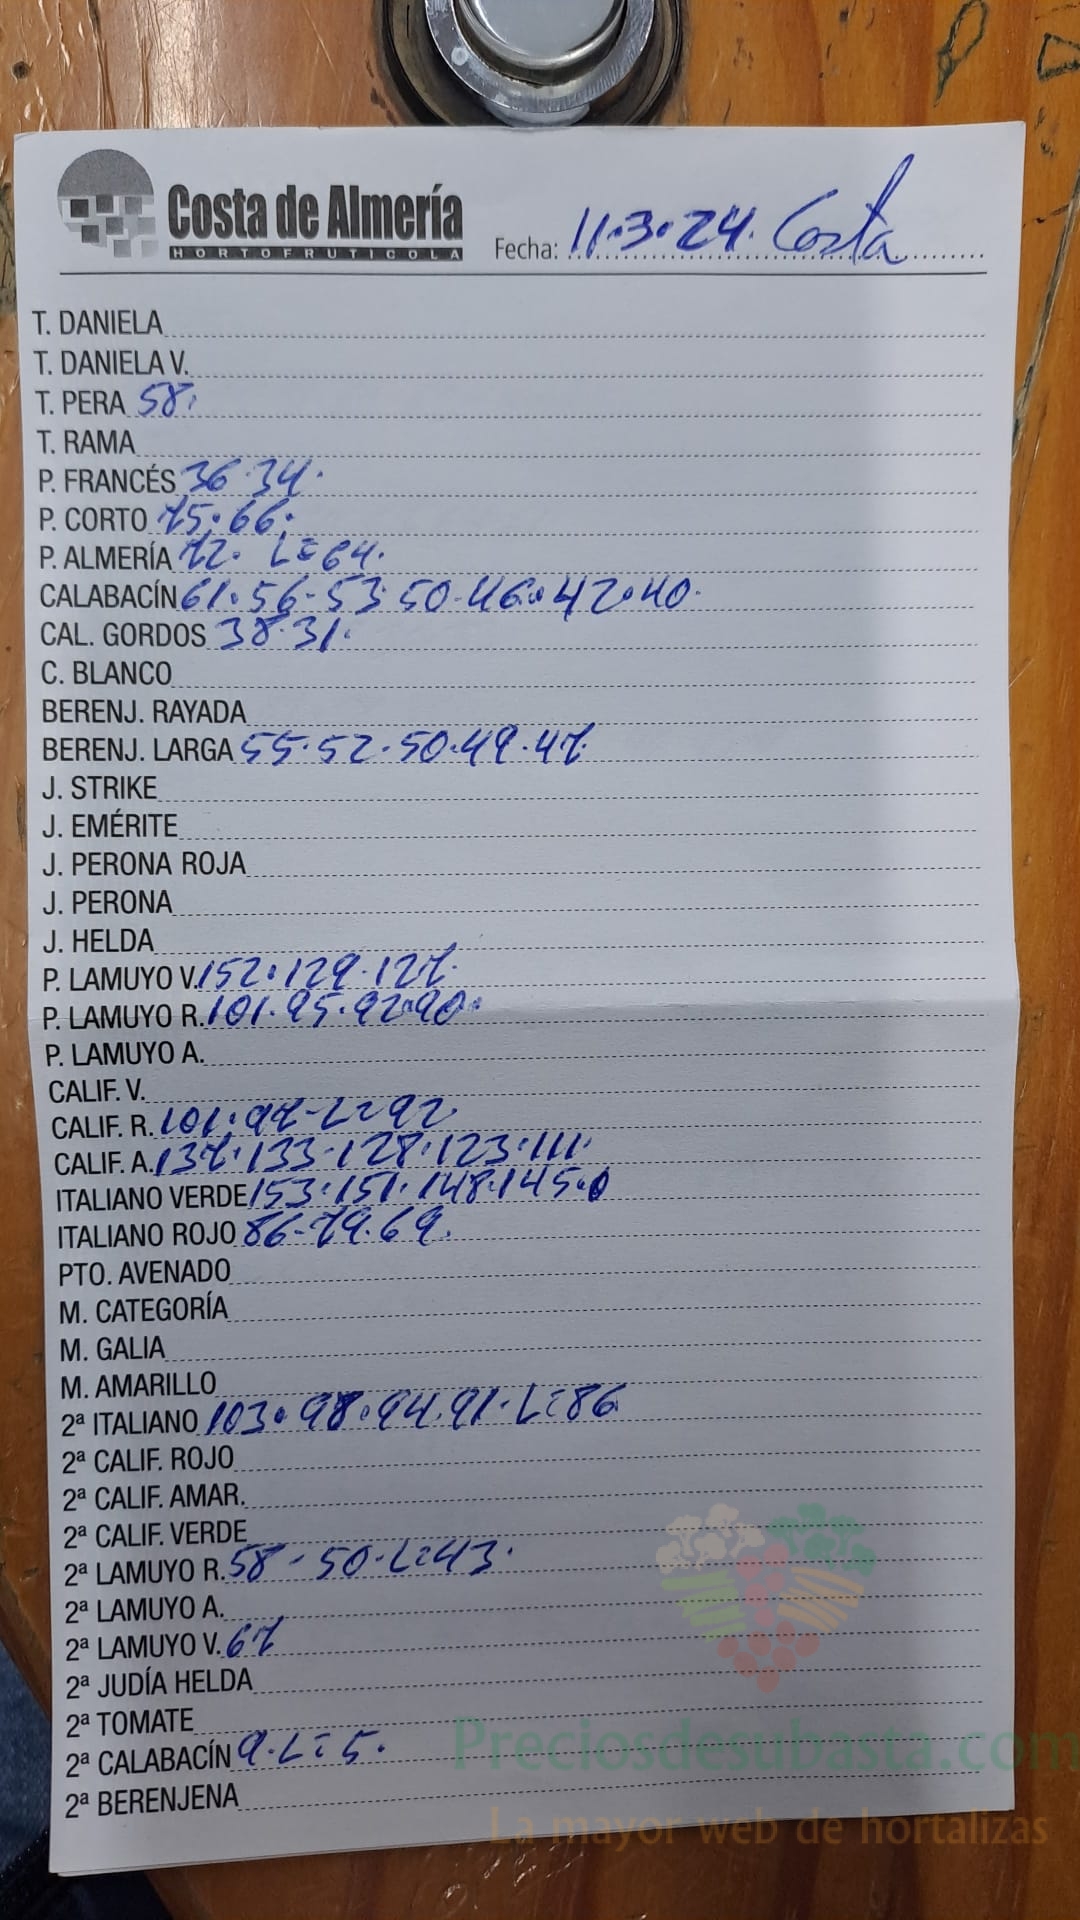 Costa de Almería
HORTOFRUTICOLA
Fecha: 11.3.24. Costa
T. DANIELA
T. DANIELA V.
T. PERA 58.
T. RAMA
P. FRANCÉS 36.34.
P. CORTO 75.66.
P. ALMERÍA 72. L=64.
CALABACÍN 61.56-53.50-46.42.40.
CAL. GORDOS 38.31.
C. BLANCO
BERENJ. RAYADA
BERENJ. LARGA 55.52.50.49.47
J. STRIKE
J. EMÉRITE
J. PERONA ROJA
J. PERONA
J. HELDA
P. LAMUYO V. 152.129.127.
P. LAMUYO R. 101.95.92.90.
P. LAMUYO A.
CALIF. V.
CALIF. R. 101.97-L=92
CALIF. A. 137.133-128.123.111.
ITALIANO VERDE 153.151.148.145.
ITALIANO ROJO 86-79.69.
PTO. AVENADO
M. CATEGORÍA
M. GALIA
M. AMARILLO
2ª ITALIANO 103.98.94.91.L=86
2ª CALIF. ROJO
2ª CALIF. AMAR.
2ª CALIF. VERDE
2ª LAMUYO R. 58-50.L=43.
2ª LAMUYO A.
2ª LAMUYO V. 67
2ª JUDÍA HELDA
2ª TOMATE
2ª CALABACÍN 9.L=5.
2ª BERENJENA
Preciosdesubasta.com
La mayor web de hortalizas